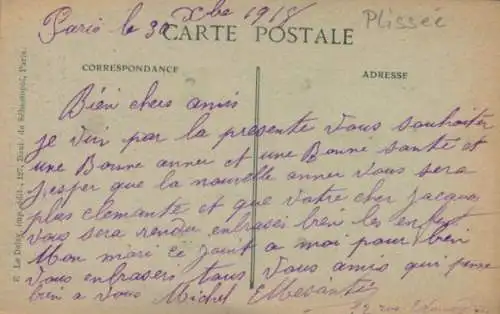 Paris le 30 Xbre 1918
Plissée
CARTE POSTALE
CORRESPONDANCE
ADRESSE
Bien chers amis
je vien par la présente vous souhaiter
une Bonne anner et une Bonne santé et
j'esper que la nouvelle anner vous sera
plus clemante et que votre cher Jacques
vous sera rendu enbrasés bien les enfant
Mon mari ce joint a moi pour bien
vous enbrasers tous vous amis qui pense
bien a vous Michel
rue
E. Le Deley, imp.-édit., 127, Boul. de Sébastopol, Paris.